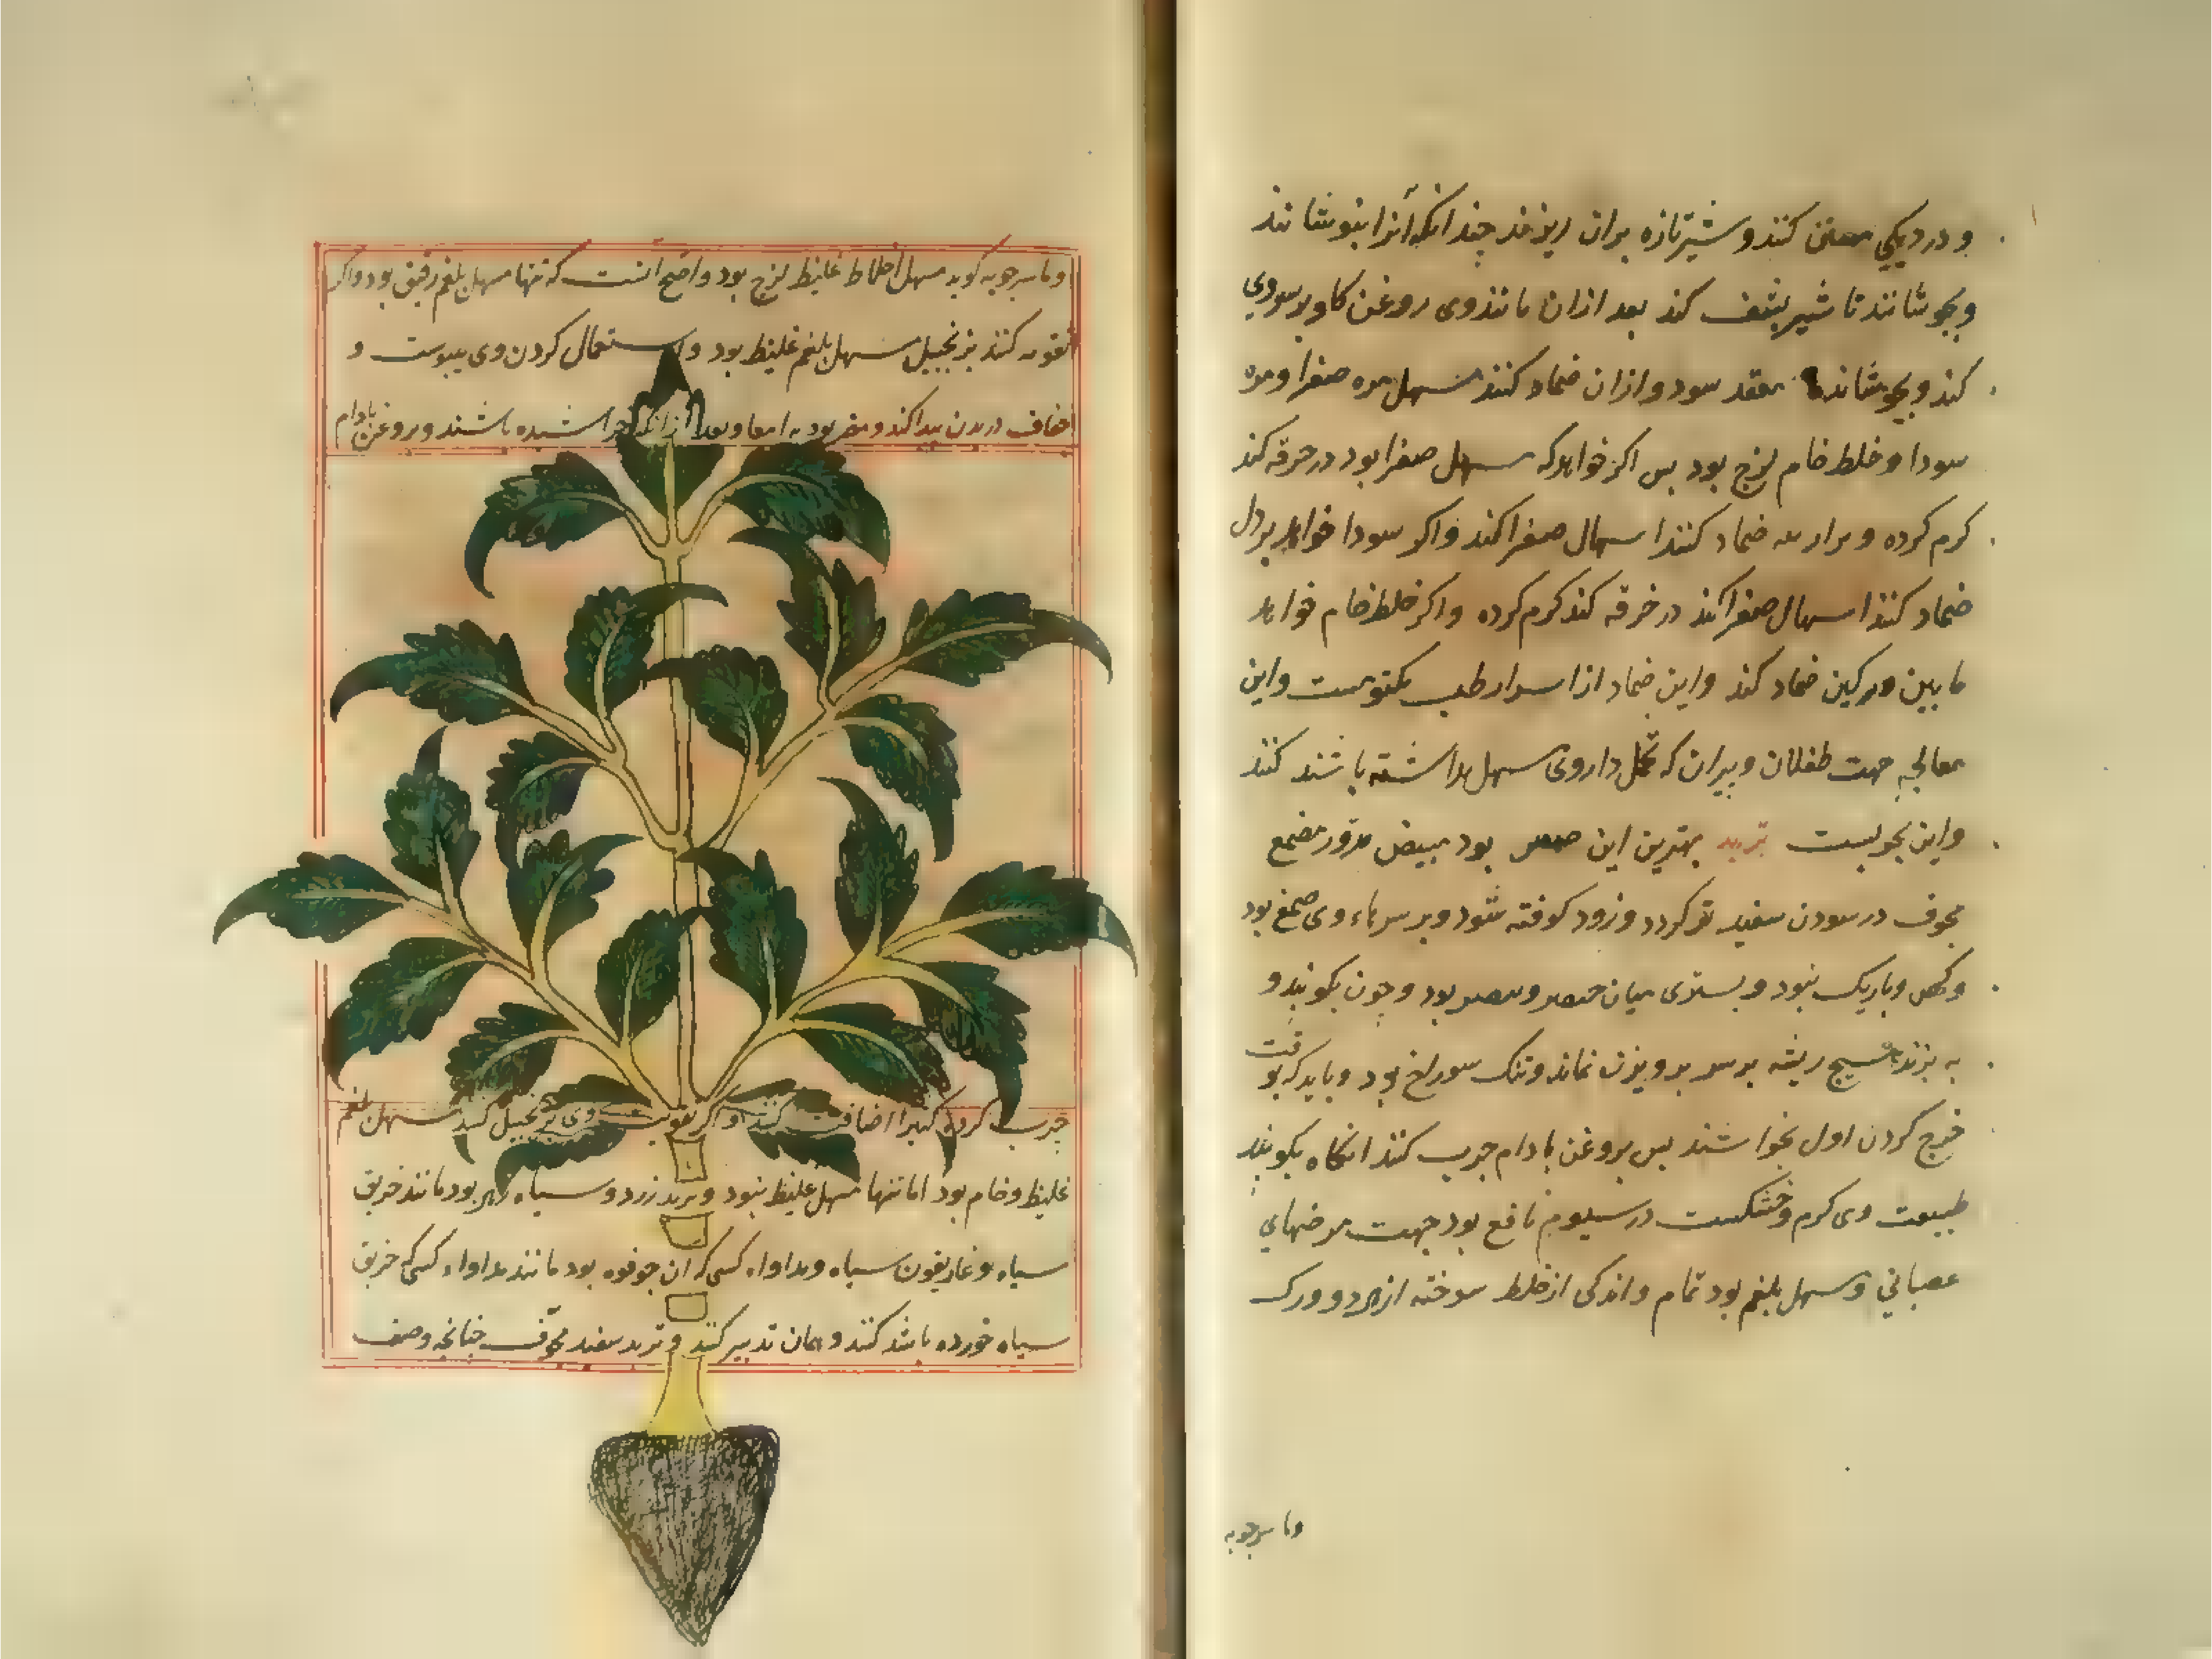 و در دیکی معین کنند و شیر تازه بران ریزند چندانکه آنرا بنوشانند
و بجوشانند تا شیر نشف کند بعد ازان مانند وی روغن کاو بر سر وی
کند و بجوشاند تا معقد سود و ازان ضماد کنند مسهل مره صفرا و مره
سودا و خلط خام لزج بود بس اکر خواهد که مسهل صفرا بود در خرقه کند
کرم کرده و ضماد کنند اسهال صفرا کند و اکر سودا خواهد بر دل
ضماد کنند اسهال صفرا کند در خرقه کند کرم کرده و اکر خلط خام خواهد
ما بین ورکین ضماد کند و این ضماد از اسرار طب مکتومست و این
معالجه جهت طفلان و پیران که تحمل داروی مسهل نداشته باشند کنند
و این مجربست تربد بهترین این بود مبیض مدور مصمغ
مجوف در سودن سفید تر کردد و زود کوفته شود و بر سرهاء وی صمغ بود
و کهن و باریک نبود و بستری میان خنصر و بنصر بود و چون بکوبند و
به بزند هیچ ریشه بر سر برویزن نماند و تنک سوراخ بود و باید که بوقت
خرج کردن اول بخراشند بس بروغن بادام چرب کنند انکاه بکوبند
طبیعت وی کرم و خشکست در سیوم نافع بود جهت مرضهای
عصبانی و مسهل بلغم بود تمام و اندکی از خلط سوخته از هر دو ورک
وماسرجویه
وماسرجویه کوید مسهل اخلاط غلیظ لزج بود و اصح انست که تنها مسهل بلغم رقیق بود و اکر
تقویه کنند بزنجبیل مسهل بلغم غلیظ بود و استعمال کردن وی یبوست و
جفاف در بدن بیدا کند و مضر بود به امعا و بعد ازانکه خراشیده باشند و بروغن بادام
چرب کرده کتیرا اضافت کنند و اکر تقویت وی بزنجبیل کنند مسهل بلغم
غلیظ و خام بود اما تنها مسهل غلیظ نبود و تربد زرد و سیاه زهر بود مانند خربق
سیاه و غاریقون سیاه و مداواء کسی که ان خورده بود مانند مداواء کسی که خربق
سیاه خورده باشد کنند و همان تدبیر کنند و تربد سفید مجوف چنانچه وصف